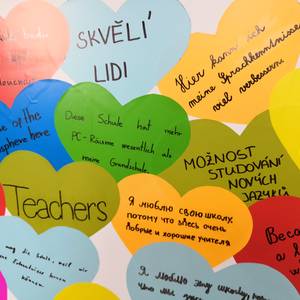 SKVĚLÍ
LIDI
Hier kann ich
meine Sprachkenntnisse
viel verbessern.
of the
here
Diese Schule hat mehr
PC-Räume wesentlich als
meine Grundschule.
MOŽNOST
STUDOVÁNÍ
NOVÝCH
JAZYKŮ
Teachers
Я люблю свою школу,
потому что здесь очень
добрые и хорошие учителя
Becau
a l
Я люблю эту школу,
что мы